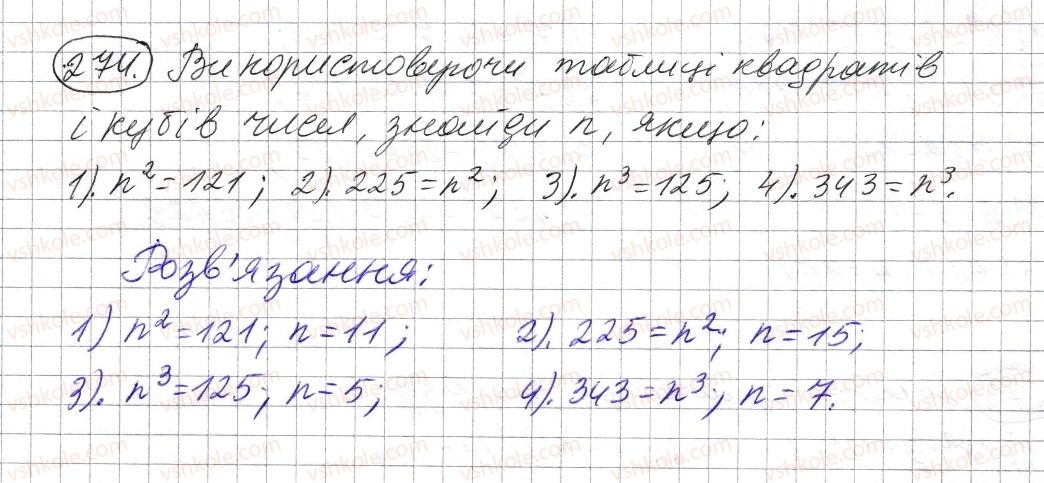 274. Використовуючи таблиці квадратів
і кубів чисел, знайди n, якщо:
1). n² = 121; 2). 225 = n²; 3). n³ = 125; 4). 343 = n³.
Розв'язання:
1) n² = 121; n = 11; 2). 225 = n²; n = 15;
3). n³ = 125; n = 5; 4). 343 = n³; n = 7.